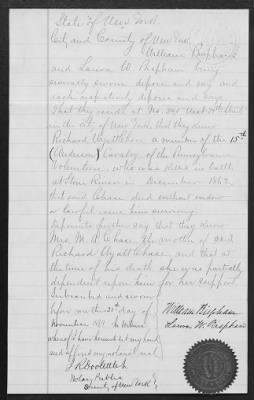 State of New York
City and County of New York
William Bispham
and Laura W. Bispham being
severally sworn depose and say and
each respectively depose and says
that they reside at No. West Street
in the City of New York, that they knew
Richard Wyatt Chase a member of the 15th
(Anderson) Cavalry of the Pennsylvania
Volunteers, who was killed in battle
at Stone River in December 1862
that said Chase died without widow
or lawful issue him surviving
Deponents further say that they knew
Mrs. M. A. Chase the mother of said
Richard Wyatt Chase, and that at
the time of his death she was partially
dependent upon him for her support
Subscribed and sworn
before me this day of
November In Witness
whereof I have hereunto set my hand
and affixed my notorial seal
William Bispham
Laura W. Bispham
Notary Public
County of New York